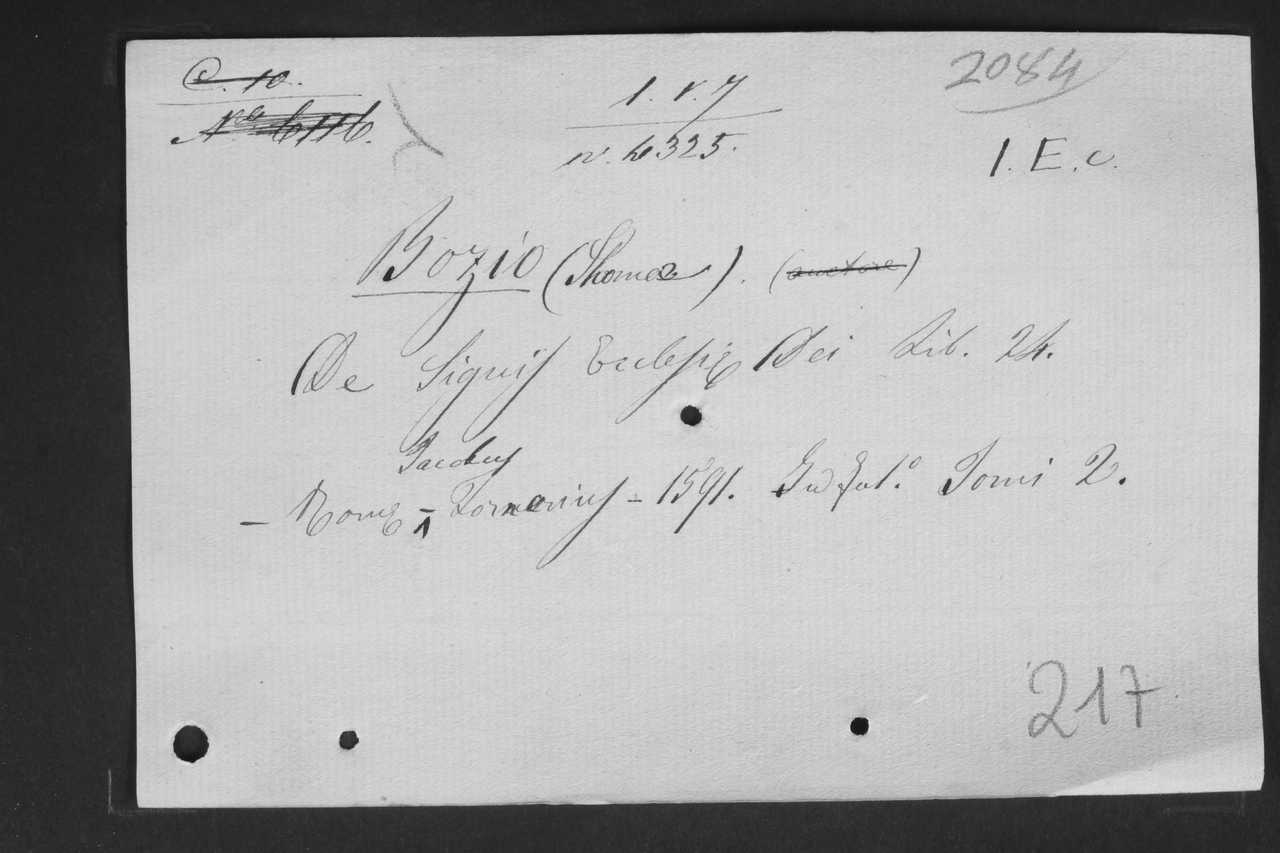 C. 10.
Nº 6116.
1. v. 7
n. 4325.
2084
1. E. c.
Bozio (Thomæ). (auctore)
De Signis Ecclesiæ Dei Lib. 24.
Jacobus
- Romæ - Tornerius - 1591. In fol.º Tomi 2.
217